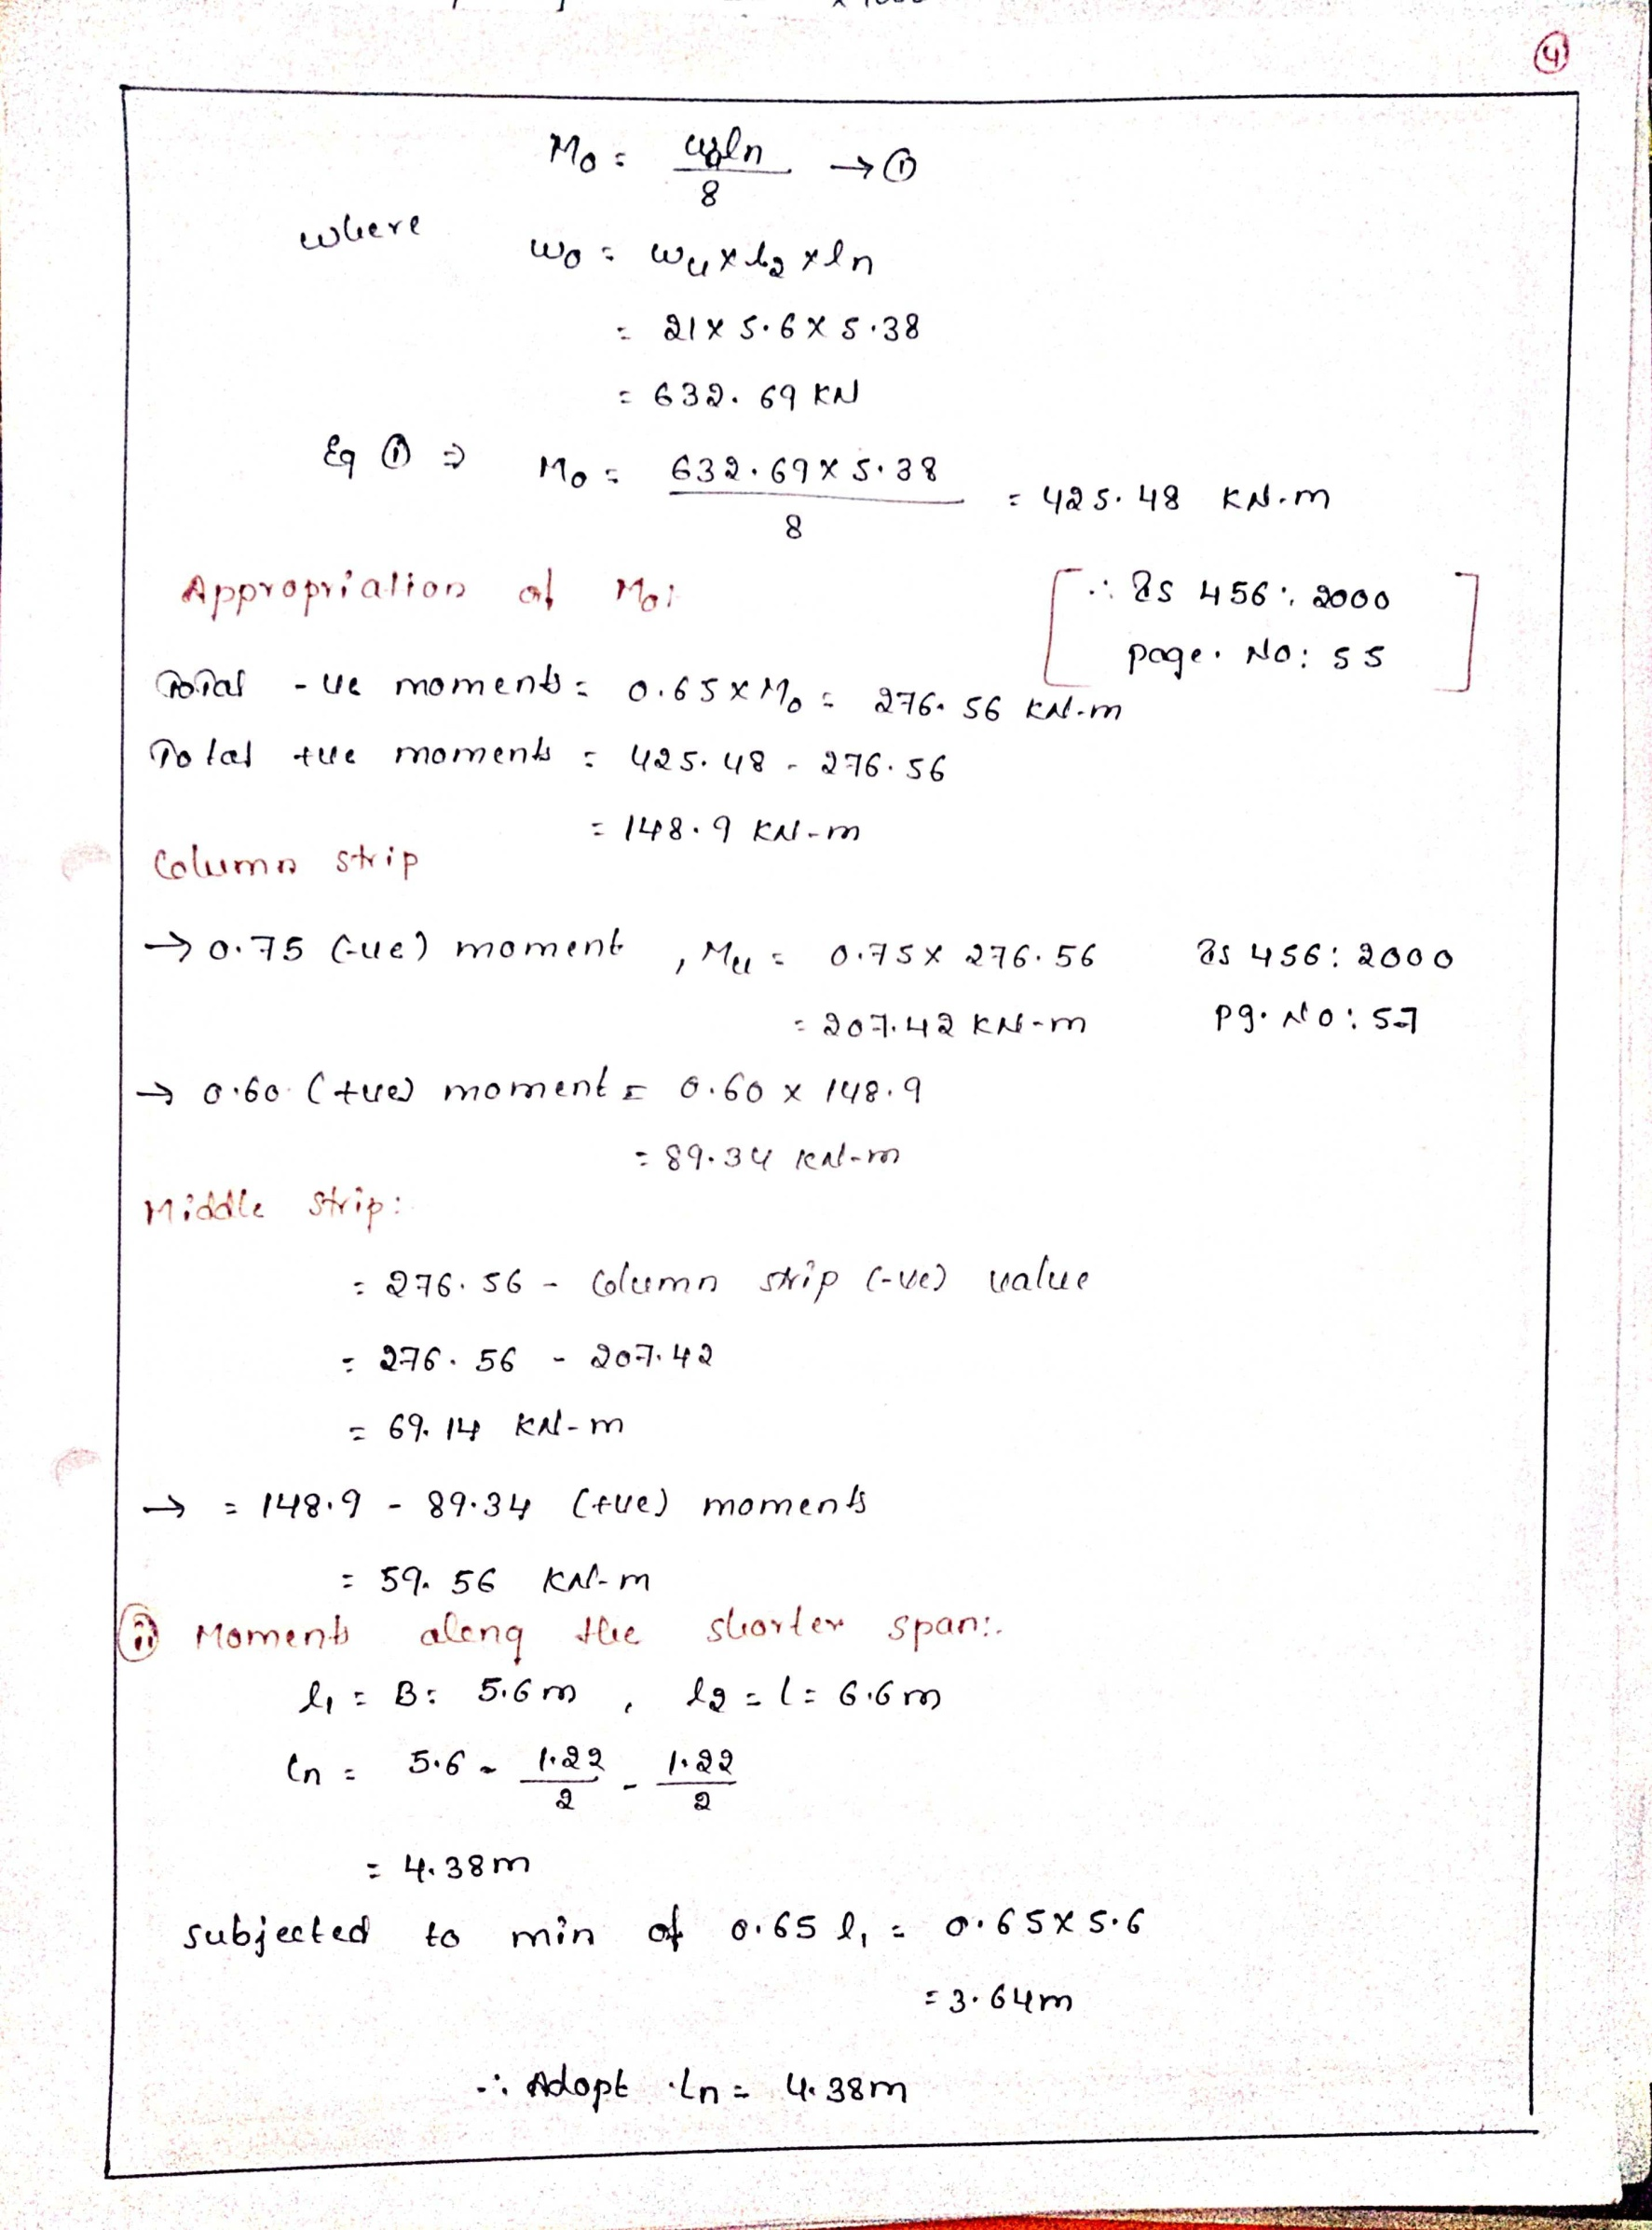 4
M₀ = w₀ln / 8 → ①
where
w₀ = wu × l2 × ln
= 21 × 5.6 × 5.38
= 632.69 KN
Eq ① ⇒ M₀ = 632.69 × 5.38 / 8 = 425.48 KN.m
Appropriation of M₀:
[∴ IS 456: 2000
page. No: 55]
Total -ve moments = 0.65 × M₀ = 276.56 KN-m
Total +ve moments = 425.48 - 276.56
= 148.9 KN-m
Column strip
→ 0.75 (-ve) moment, Mu = 0.75 × 276.56
IS 456: 2000
= 207.42 KN-m
Pg. No: 57
→ 0.60 (+ve) moment = 0.60 × 148.9
= 89.34 KN-m
Middle strip:
= 276.56 - Column strip (-ve) value
= 276.56 - 207.42
= 69.14 KN-m
→ = 148.9 - 89.34 (+ve) moments
= 59.56 KN-m
ii Moments along the shorter span:-
l1 = B = 5.6m, l2 = l = 6.6m
ln = 5.6 - 1.22/2 - 1.22/2
= 4.38m
subjected to min of 0.65 l1 = 0.65 × 5.6
= 3.64m
∴ Adopt ln = 4.38m